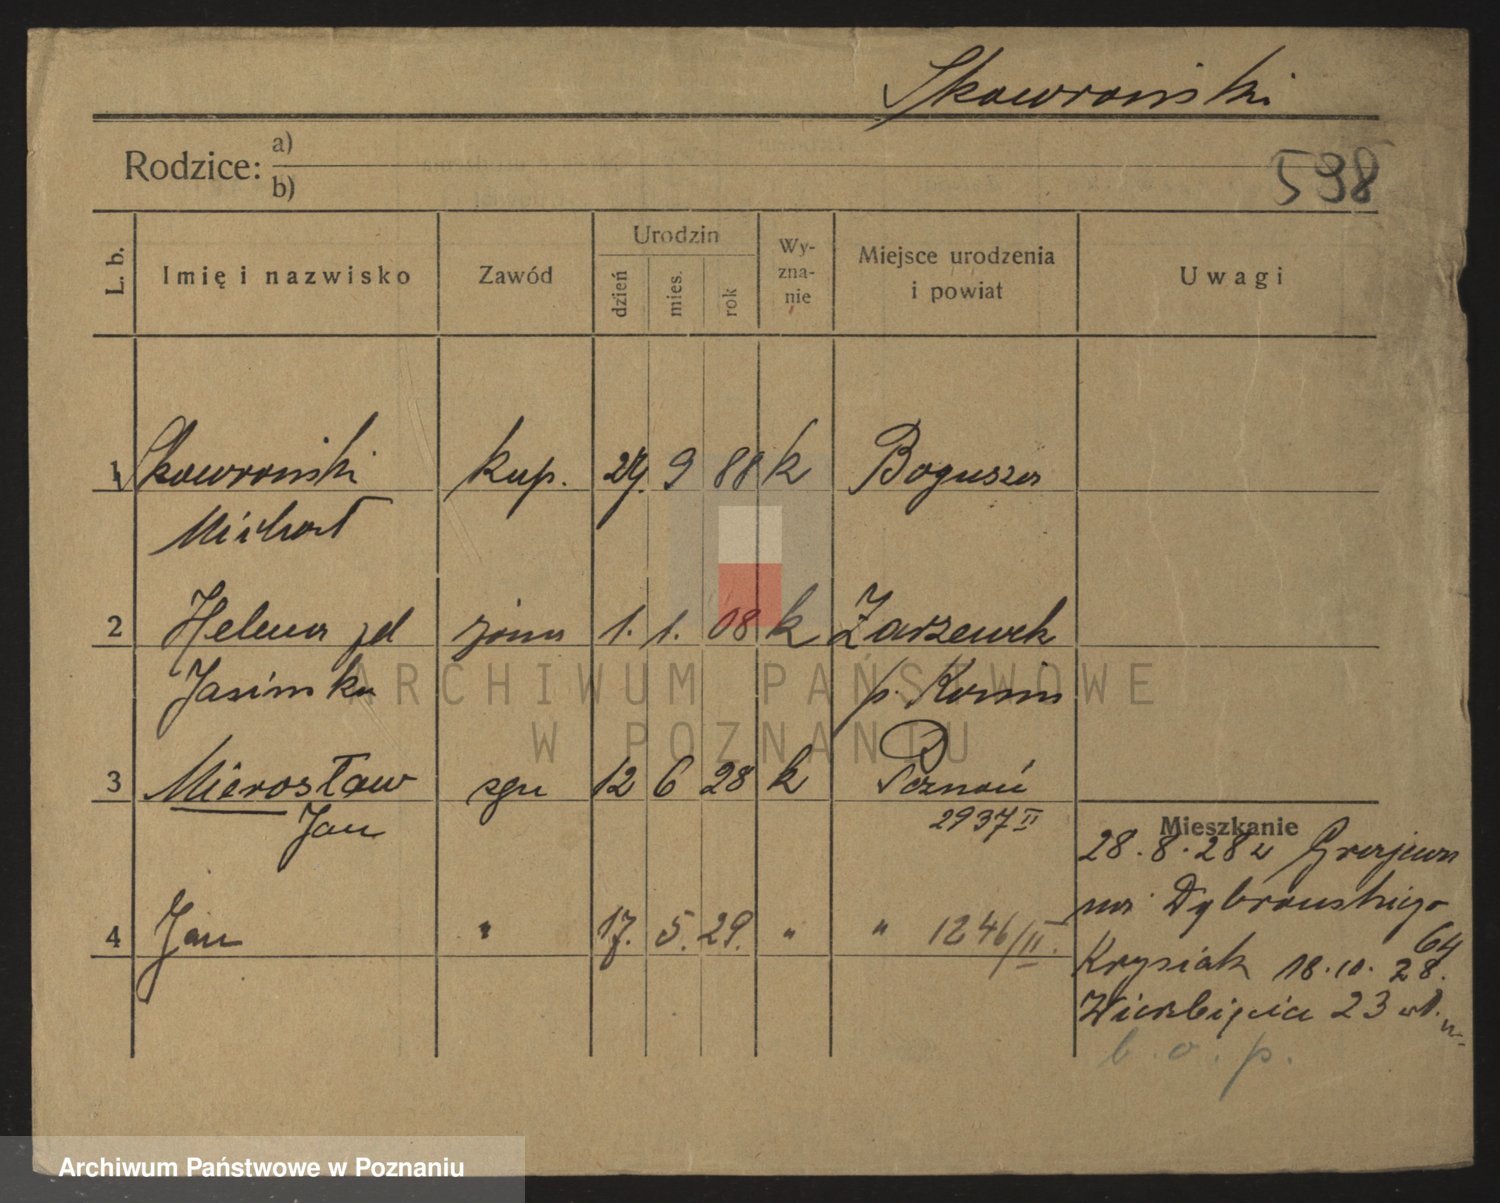 Skowroński
Rodzice: a)
b)
598
L. b.
Imię i nazwisko
Zawód
Urodzin
dzień
mies.
rok
Wy-
zna-
nie
Miejsce urodzenia
i powiat
Uwagi
1 Skowroński kup. 29. 9 88 k Bogusza
Michał
2 Helena żona 1. 1. 08 k Zarzewek
Jasińska p. Konin
3 Mierosław syn 12 6 28 k Poznań
Jan 2937 II
Mieszkanie
28.8.28 z Grajewa
na Dąbrowskiego
64
4 Jan " 17. 5. 29. " " 1246/II.
Krysiak 18.10.28.
Wierzbięcice 23
b. o. p.
ARCHIWUM PAŃSTWOWE
W POZNANIU
Archiwum Państwowe w Poznaniu